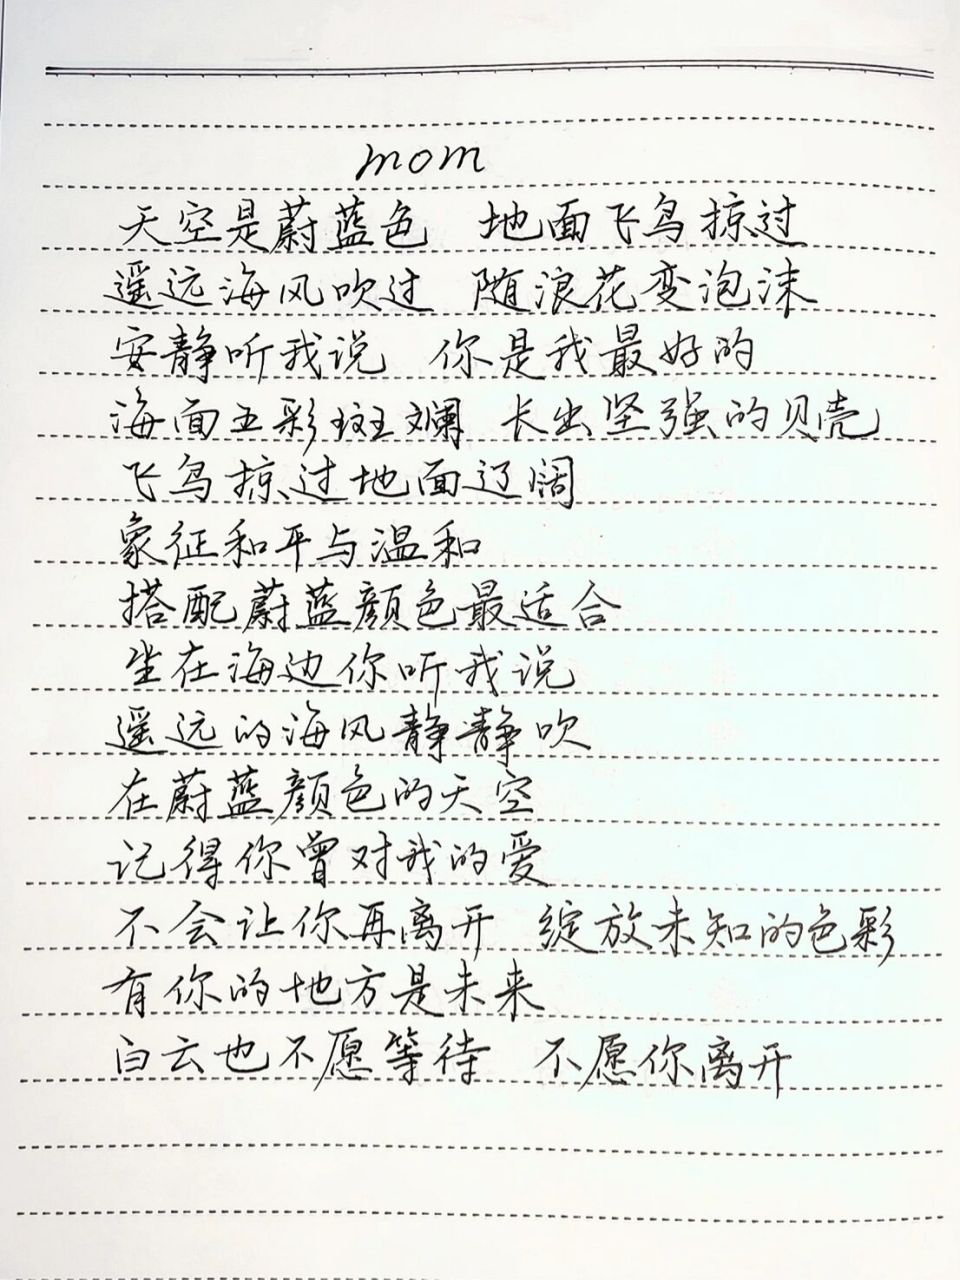 mom
天空是蔚蓝色 地面飞鸟掠过
遥远海风吹过 随浪花变泡沫
安静听我说 你是我最好的
海面五彩斑斓 长出坚强的贝壳
飞鸟掠过地面辽阔
象征和平与温和
搭配蔚蓝颜色最适合
坐在海边你听我说
遥远的海风静静吹
在蔚蓝颜色的天空
记得你曾对我的爱
不会让你再离开 绽放未知的色彩
有你的地方是未来
白云也不愿等待 不愿你离开